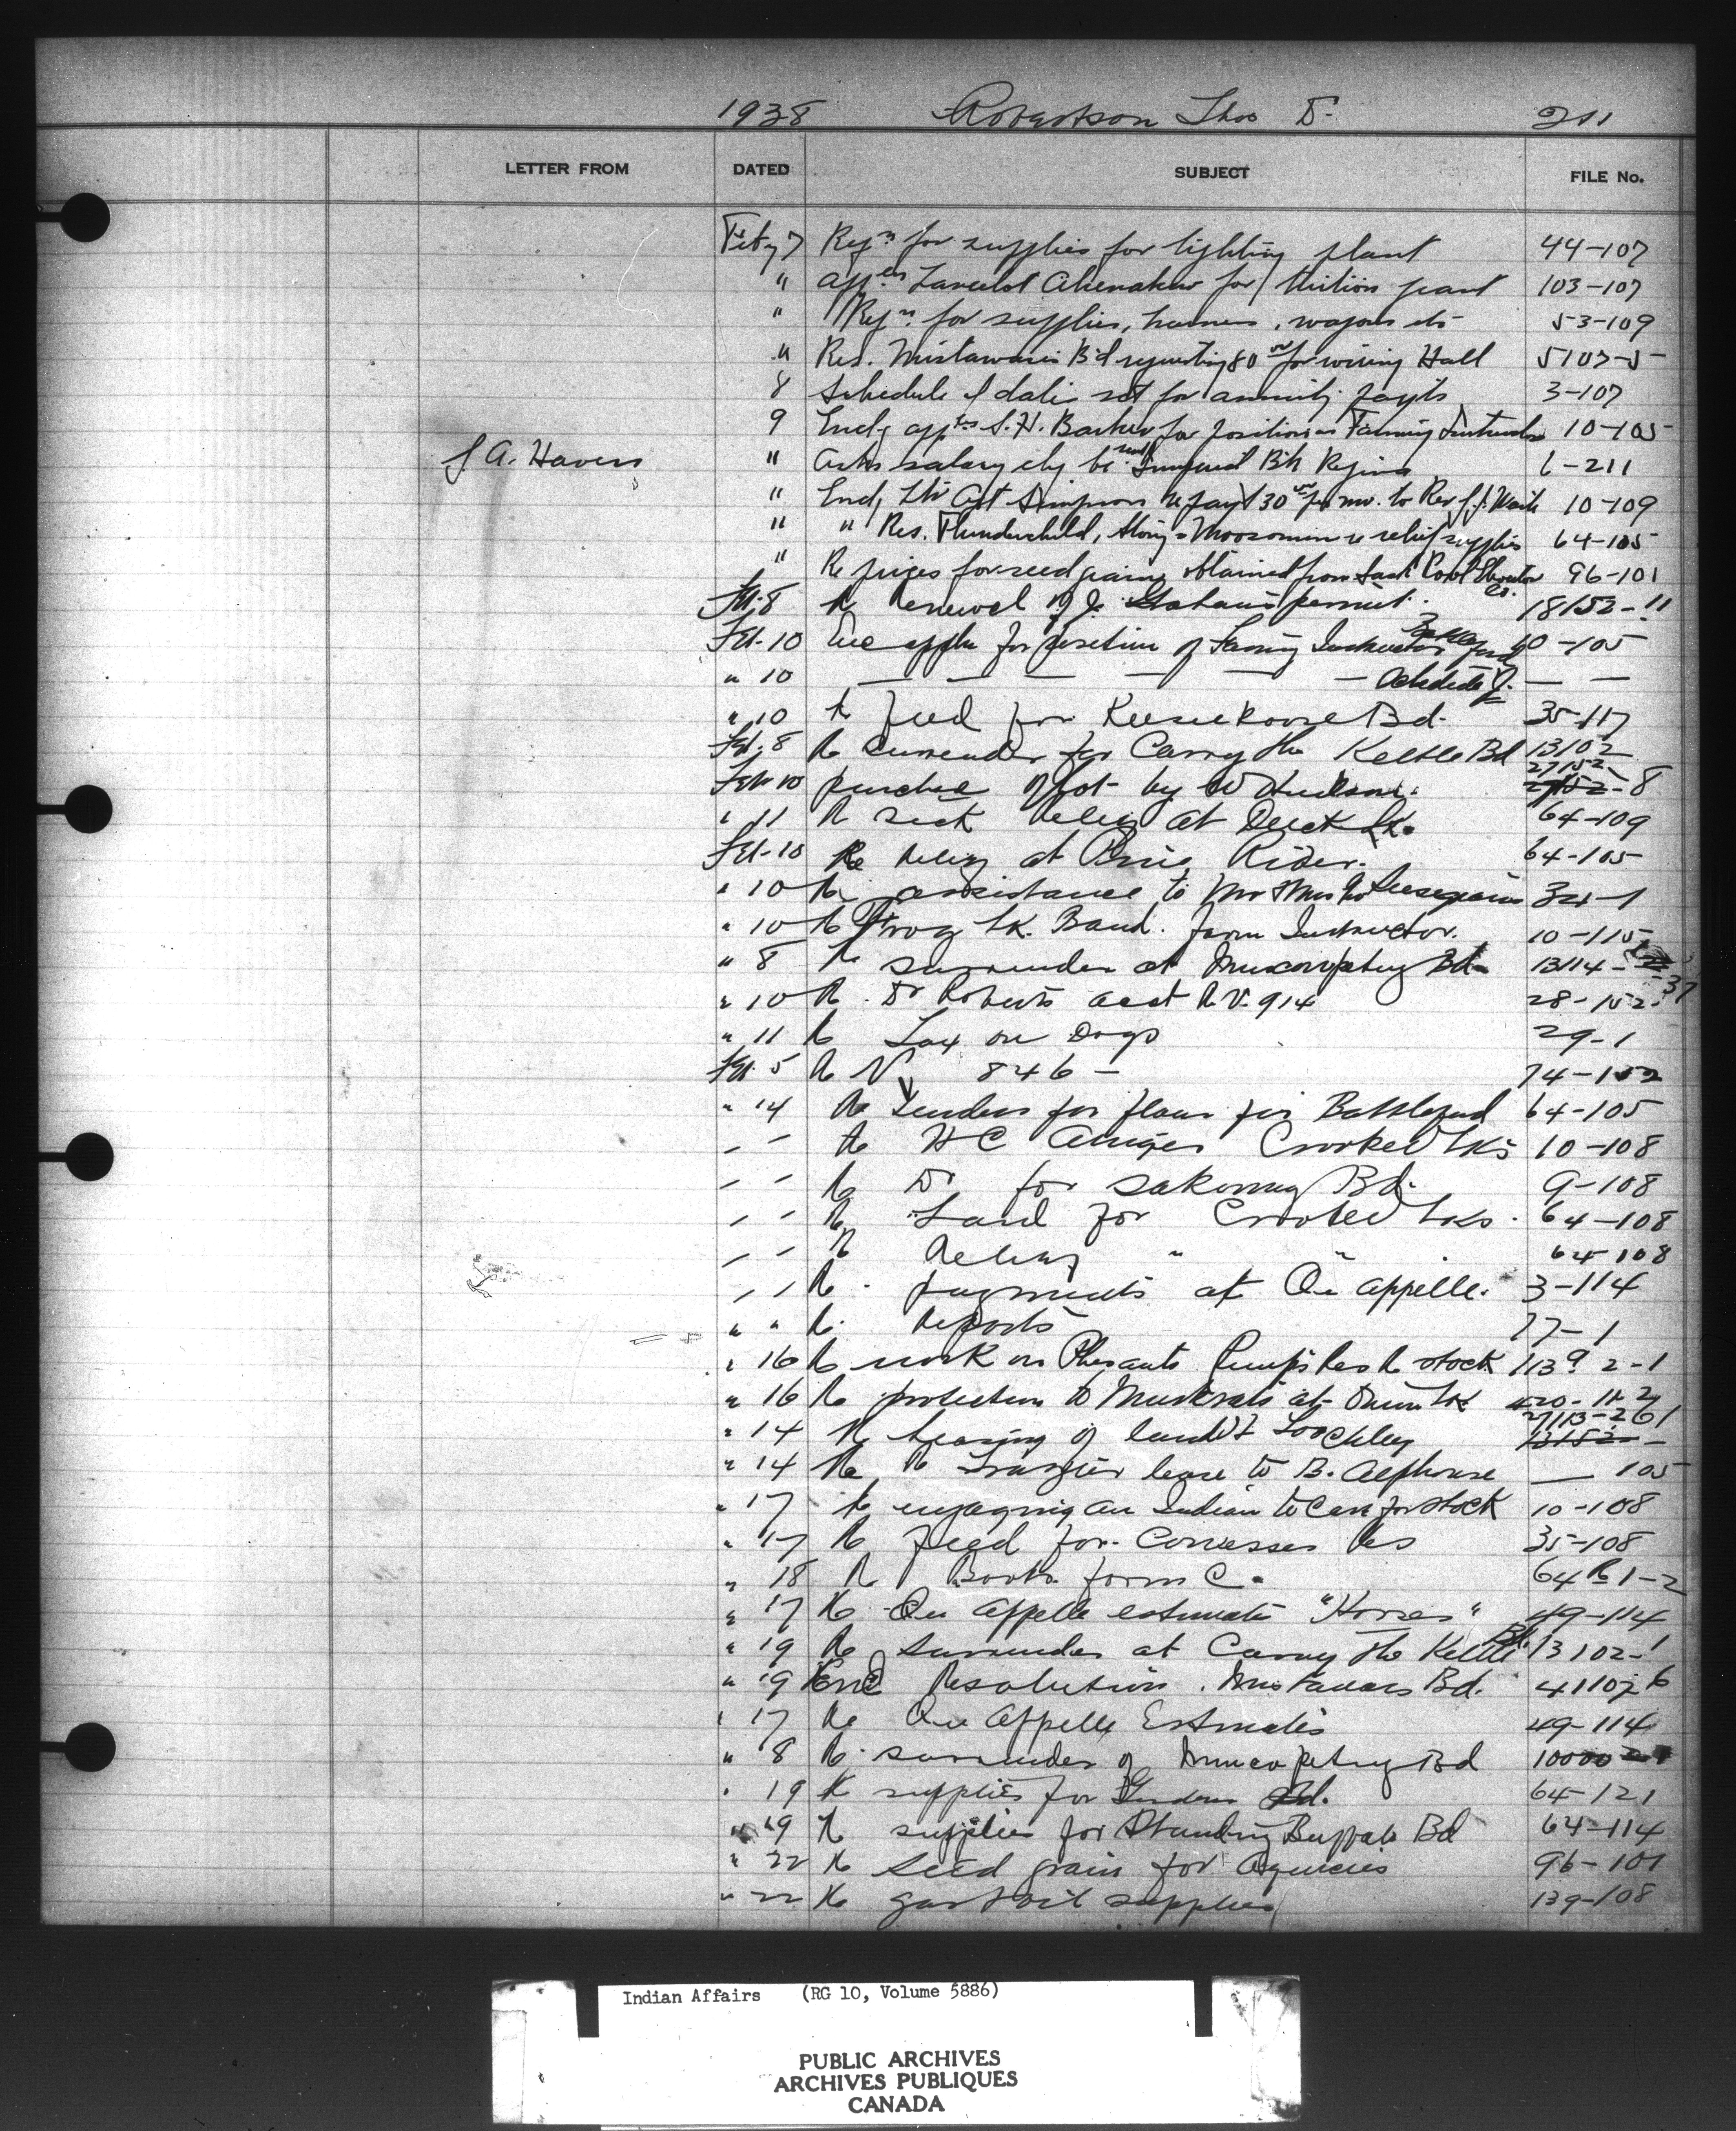 1938 Robertson Thos D. 211
LETTER FROM DATED SUBJECT FILE No.
Feby 7 Reqn for supplies for lighting plant 44-107
" appln for tuition grant 103-107
" Reqn for supplies, harness, wagons etc 53-109
" Res. Mistawasis Bd requesting 80 00 for wiring Hall 5107-5
8 Schedule of dates set for annuity payts 3-107
9 Encl'g appln S. H. Barker for position as Farming Instructor 10-105
J. A. Havers " Asks salary chq be sent Imperial Bk Regina 6-211
" Encl. Ltr Agt Simpson re payt 30 00 per mo. to Rev 10-109
" " Res. Thunderchild, Stony & Moosomin re relief supplies 64-105
" Re prices for seed grain obtained from Sask Pool Elevator Co. 96-101
Feb. 8 Re Renewal of J. permit. 18152-11
Feb-10 Enc appln for position of Farming Instructor Battleford 10-105
" 10 — — — — — — —
" 10 Re feed for Keeseekoose Bd. 35-117
Feb. 8 Re surrender for Carry the Kettle Bd 13102
Feb 10 purchase of lot by W Hudson. 27152-8
" 11 Re seed relief at Duck Lk. 64-109
Feb-10 Re relief at Pine Rider. 64-105
" 10 Re assistance to Mr & Mrs 34-1
" 10 Re Frog Lk. Band. Farm Instructor. 10-115
" 8 Re surrender at Muscowpetung Bd 13114-37
" 10 Re. Dr Roberts acct R.V. 914 28-152
" 11 Re Tax on Dogs 29-1
Feb. 5 Re V. 846 - 74-152
" 14 Re Tenders for flour for Battleford 64-105
" " Re H C Crooked Lks 10-108
" " Re Dr for Sakimay Bd. 9-108
" " Re Land for Crooked Lks. 64-108
" " Re Relief " " 64-108
" " Re. payments at Qu appelle. 3-114
" " Re. Reports 77-1
" 16 Re work on Pheasants Rump Res Re stock 113 2-1
" 16 Re protection to Muskrats at Onion Lk 420-11-2
27113-261
" 14 Re leasing of land Loochley
" 14 Re Re Frazier lease to B. Alphonse — 105
" 17 Re engaging an Indian to Care for stock 10-108
" 17 Re feed for Cowesses Res 35-108
" 18 Re Books form C. 64 R 1-2
" 17 Re Qu Appelle estimates "Horses" 49-114
" 19 Re surrender at Carry the Kettle Bd. 13102-1
" 19 Enc Resolution. Mistawasis Bd. 41107-6
" 17 Re Qu Appelle Estimates 49-114
" 8 Re. surrender of Muscopetung Bd 10000
" 19 Re supplies for Bd. 64-121
" 19 Re supplies for Standing Buffalo Bd 64-114
" 22 Re seed grain for Agencies 96-101
" 22 Re gas & oil supplies 139-108
Indian Affairs (RG 10, Volume 5886)
PUBLIC ARCHIVES
ARCHIVES PUBLIQUES
CANADA